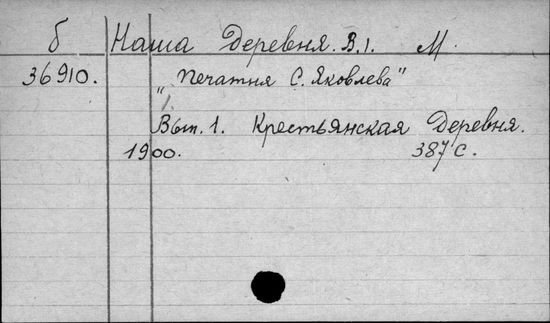 б Наша Деревня. В.1. М.
36910. „Печатня С. Яковлева"
Вып. 1. Крестьянская Деревня.
1900. 387 с.